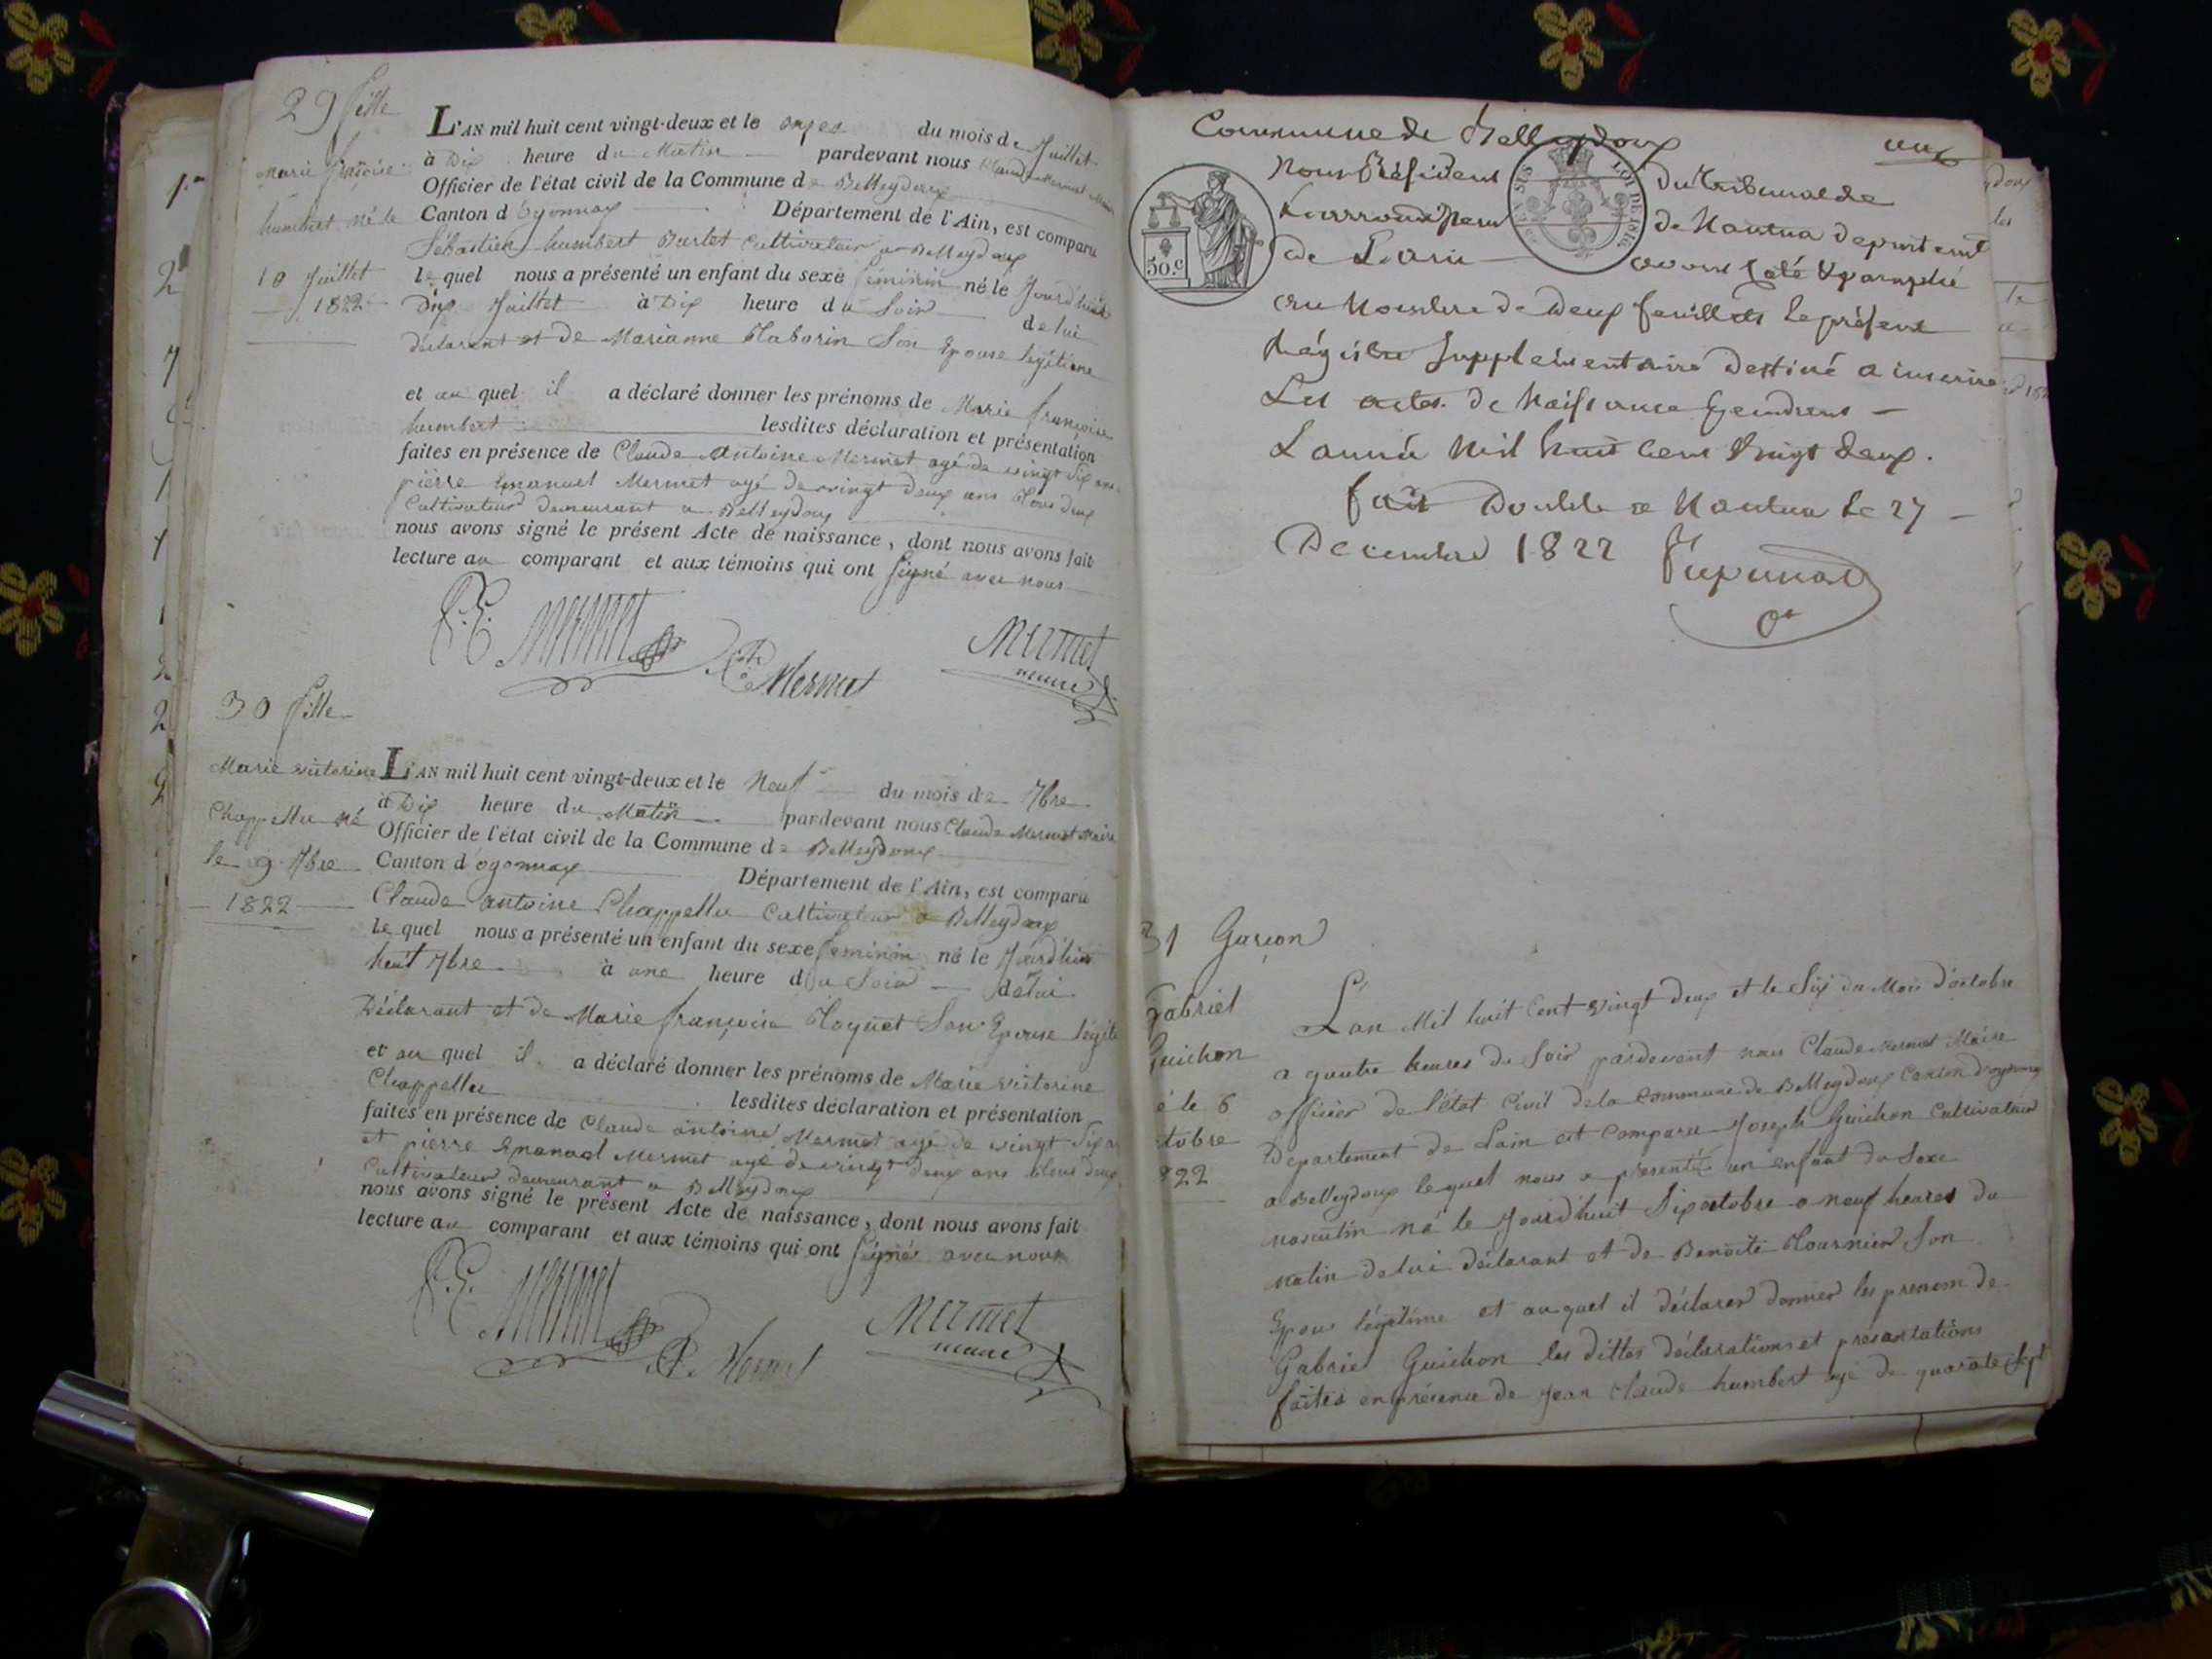 29 fille
Marie françoise
humbert né le
10 Juillet
1822
L'AN mil huit cent vingt-deux et le onzes du mois de Juillet
à Dix heure du Matin pardevant nous Claude Mermet Maire
Officier de l'état civil de la Commune de Belleydoux
Canton d'oyonnax Département de l'Ain, est comparu
Sébastien humbert Burlet Cultivateur a Belleydoux
lequel nous a présenté un enfant du sexe feminin né le Jourd'hui
Dix Juillet à Dix heure du Soir de lui
déclarant et de Marianne Son Epouse légitime
et au quel il a déclaré donner les prénoms de Marie françoise
humbert lesdites déclaration et présentation
faites en présence de Claude Antoine Mermet agé de vingt Six ans
pierre Emanuel Mermet agé de vingt deux ans tous deux
Cultivateur demeurant a Belleydoux
nous avons signé le présent Acte de naissance, dont nous avons fait
lecture au comparant et aux témoins qui ont signé avec nous
Mermet
Mermet
Mermet
maire
30 fille
Marie victorine
Chappellu né
le 9 7bre
1822
L'AN mil huit cent vingt-deux et le Neuf du mois de 7bre
à Dix heure du Matin pardevant nous Claude Mermet Maire
Officier de l'état civil de la Commune de Belleydoux
Canton d'oyonnax Département de l'Ain, est comparu
Claude antoine Chappellu Cultivateur a Belleydoux
lequel nous a présenté un enfant du sexe feminin né le Jourd'hui
heuit 7bre à une heure du Soir de lui
Déclarant et de Marie françoise Son Epouse légiti
et au quel il a déclaré donner les prénoms de Marie victorine
Chappellu lesdites déclaration et présentation
faites en présence de Claude antoine Mermet agé de vingt Six an
et pierre Emanuel Mermet agé de vingt deux ans tous deux
Cultivateur demeurant a Belleydoux
nous avons signé le présent Acte de naissance, dont nous avons fait
lecture au comparant et aux témoins qui ont signé avec nous
Mermet
Mermet
Mermet
maire
Commune de Belleydoux
un
50.c
LOI DE 1816.
Nous Président du tribunal de
de Nantua departement
de L'ain avons Coté & paraphé
au Nombre de Deux feuillets le présent
Régistre Supplémentaire Destiné a inscrire
Les actes de Naissance pendant
L'année Mil huit Cent Vingt deux.
fait Double a Nantua le 27
Décembre 1822
31 Garçon
Gabriel
Guichon
é le 6
ctobre
822
L'an Mil huit Cent vingt deux et le Six du Mois d'octobre
a quatre heures du Soir pardevant nous Claude Mermet Maire
officier de l'état Civil de la Commune de Belleydoux Canton d'oyonnax
Département de Lain est comparu Joseph Guichon Cultivateur
a Belleydoux lequel nous a presenté un enfant du Sexe
masculin né le Jourd'huit Six octobre a neuf heures du
matin de lui déclarant et de Benoite Tournier Son
Epouse légitime et auquel il déclarer donner les prenom de
Gabriel Guichon les dittes déclarations et présantations
faites en présence de Jean Claude humbert agé de quarate sept